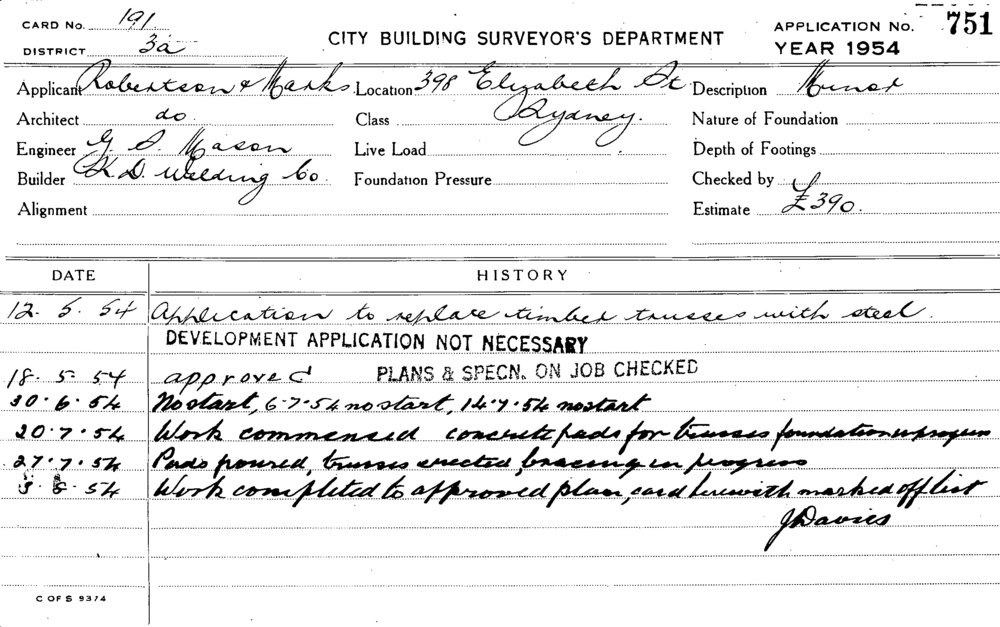 CARD No. 191
DISTRICT 3a
CITY BUILDING SURVEYOR'S DEPARTMENT
APPLICATION No. 751
YEAR 1954
Applicant Robertson & Marks Location 398 Elizabeth St Description Minor
Architect do. Class Sydney. Nature of Foundation
Engineer G. S. Mason Live Load Depth of Footings
Builder K. D. Welding Co. Foundation Pressure Checked by
Alignment Estimate £390.
DATE HISTORY
12. 5. 54 Application to replace timber trusses with steel.
DEVELOPMENT APPLICATION NOT NECESSARY
18. 5. 54 approved PLANS & SPECN. ON JOB CHECKED
30. 6. 54 No start, 6.7.54 no start, 14.7.54 no start
20. 7. 54 Work commensed concrete pads for trusses foundation in progress
27. 7. 54 Pads poured, trusses erected, bracing in progress
3. 8. 54 Work completed to approved plan, card herewith marked off list
J Davies
C OF S 9374